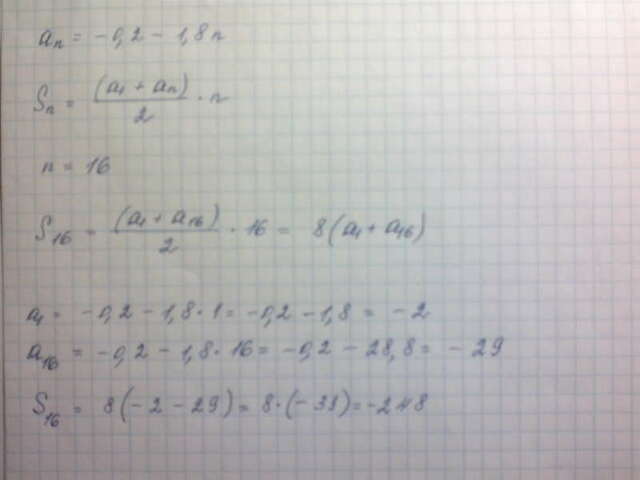 aₙ = -0,2 - 1,8n
Sₙ = (a₁ + aₙ)/2 · n
n = 16
S₁₆ = (a₁ + a₁₆)/2 · 16 = 8(a₁ + a₁₆)
a₁ = -0,2 - 1,8·1 = -0,2 - 1,8 = -2
a₁₆ = -0,2 - 1,8·16 = -0,2 - 28,8 = -29
S₁₆ = 8(-2 - 29) = 8·(-31) = -248